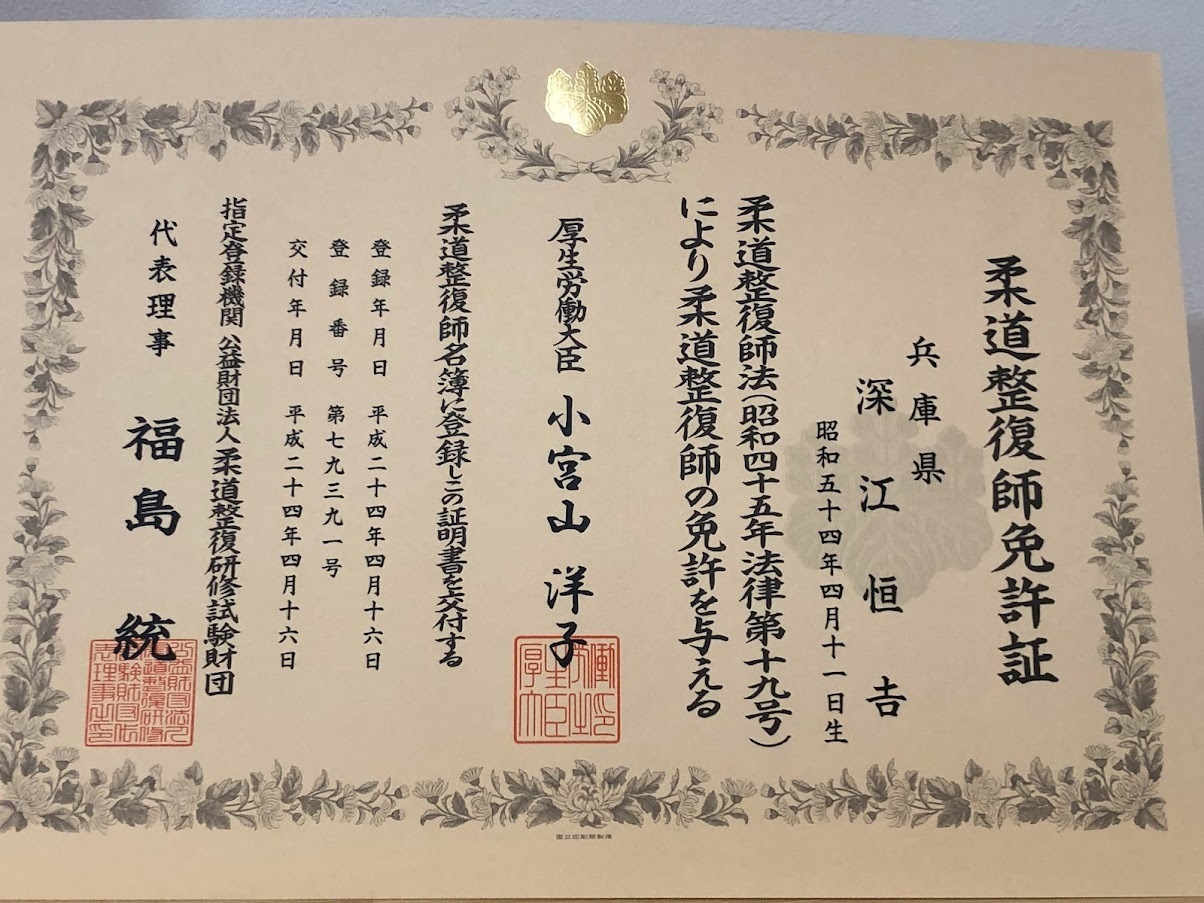 柔道整復師免許証
兵庫県
深江恒𠮷
昭和五十四年四月十一日生
柔道整復師法(昭和四十五年法律第十九号)
により柔道整復師の免許を与える
厚生労働大臣 小宮山洋子
柔道整復師名簿に登録しこの証明書を交付する
登録年月日 平成二十四年四月十六日
登録番号 第七九三九一号
交付年月日 平成二十四年四月十六日
指定登録機関 公益財団法人柔道整復研修試験財団
代表理事 福島統
国立印刷局製造